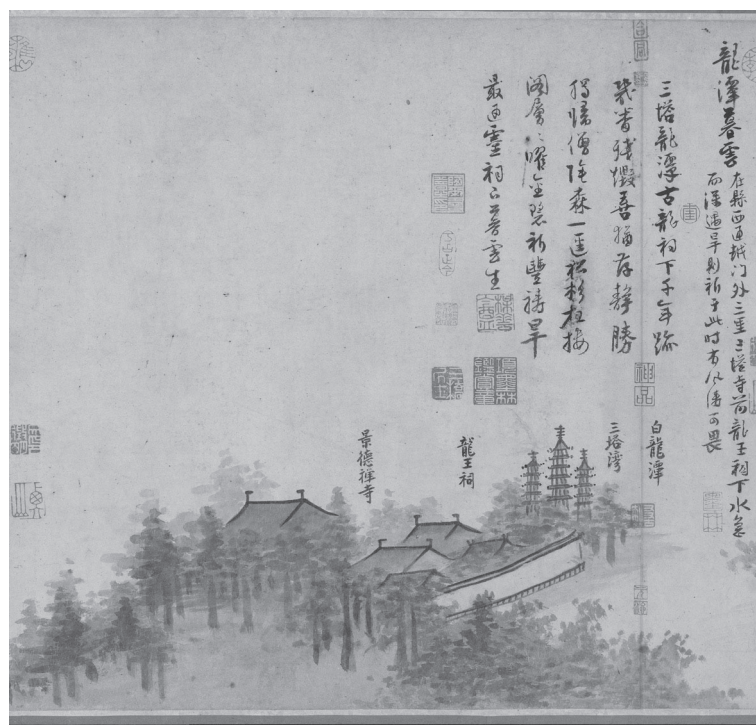 龍潭暮雲
在縣西通越门外三里三塔寺前龍王祠下水急
而深遇旱則祈于此時有風濤可畏
三塔龍潭古龍祠下千年跡
幾番殘毀喜猶存靜勝
獨歸僧陰森一逕松杉直樓
閣層〻曜金碧祈豐禱旱
最通靈祠下暮雲生
白龍潭
三塔灣
龍王祠
景德禪寺
神品